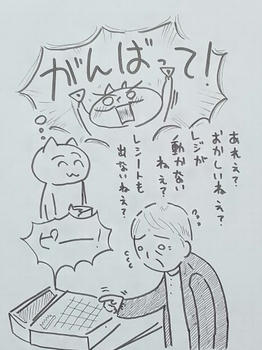 がんばって!
あれぇ?
おかしいねぇ?
レジが
動かない
ねぇ?
レシートも
出ないねぇ?
ピー